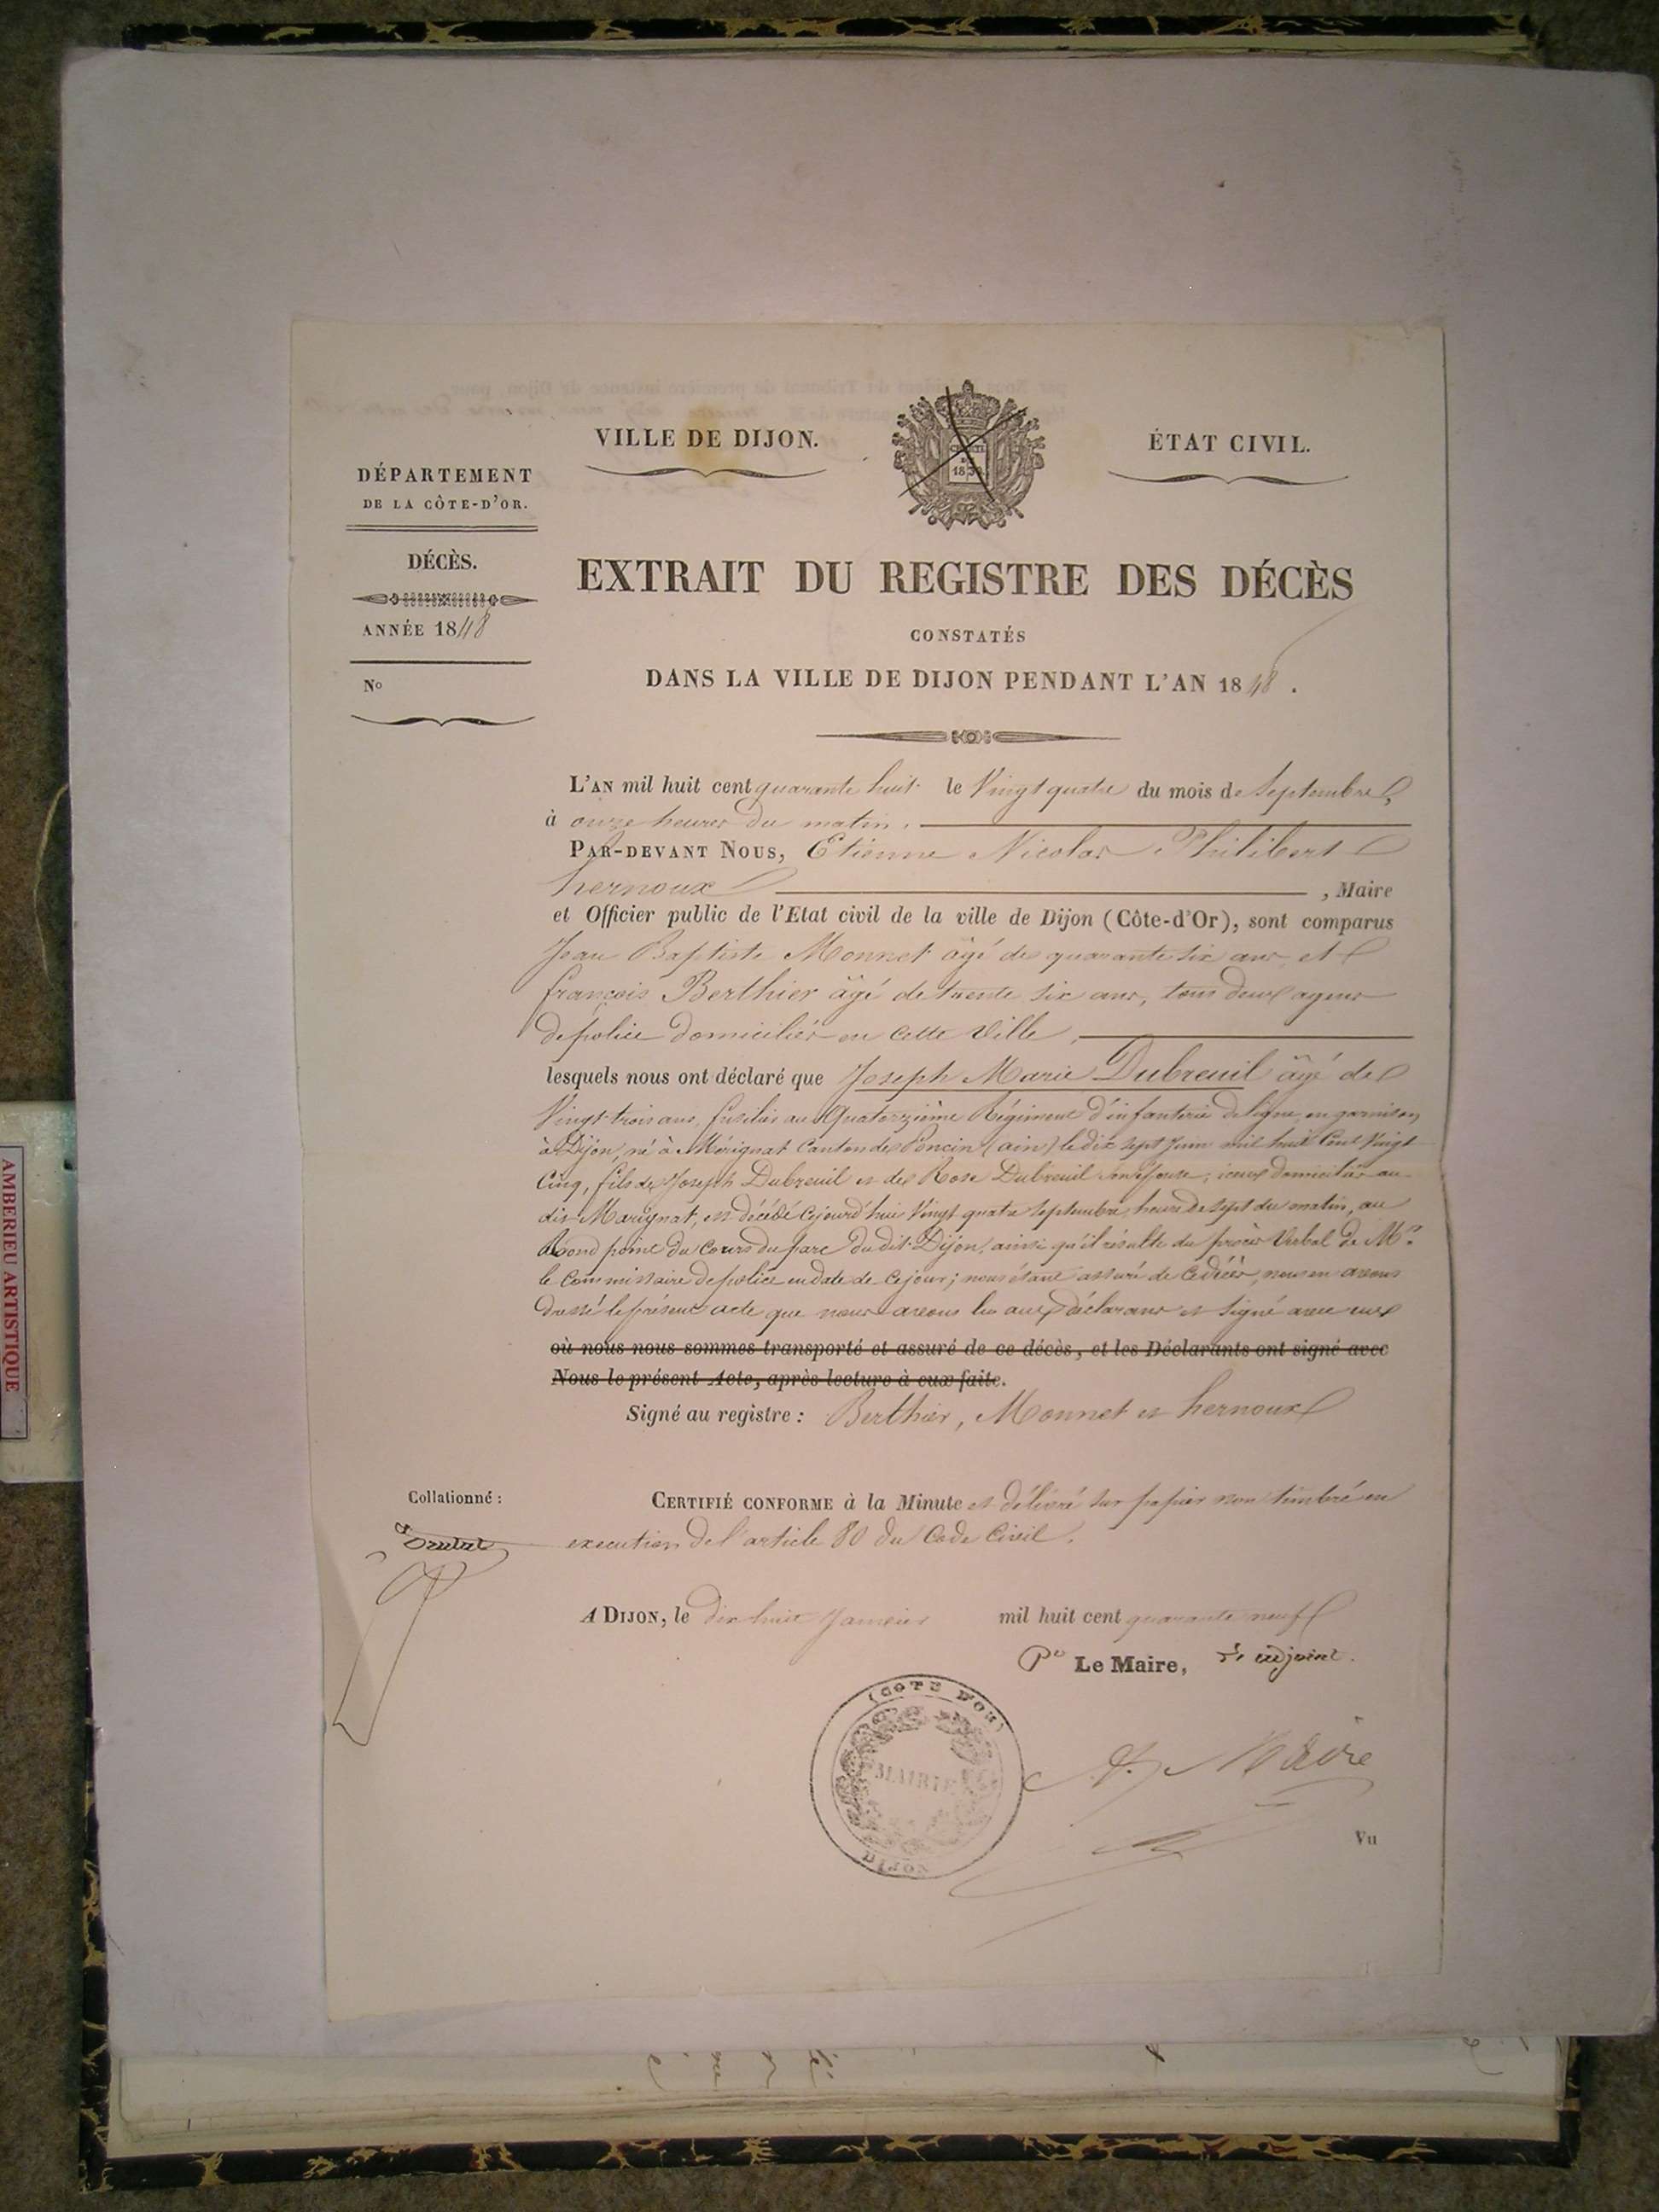 VILLE DE DIJON.
ÉTAT CIVIL.
1830
DÉPARTEMENT
DE LA CÔTE-D'OR.
DÉCÈS.
ANNÉE 1848
No
EXTRAIT DU REGISTRE DES DÉCÈS
CONSTATÉS
DANS LA VILLE DE DIJON PENDANT L'AN 1848.
L'AN mil huit cent quarante huit le Vingt quatre du mois de Septembre,
à onze heures du matin,
PAR-DEVANT NOUS, Etienne Nicolas Philibert
hernoux , Maire
et Officier public de l'Etat civil de la ville de Dijon (Côte-d'Or), sont comparus
Jean Baptiste Monnet âgé de quarante six ans, et
françois Berthier âgé de trente six ans, tous deux agens
de police domiciliés en cette Ville,
lesquels nous ont déclaré que Joseph Marie Dubreuil âgé de
Vingt-trois ans, fusilier au Quatorzième Régiment d'infanterie de ligne en garnison
à Dijon, né à Mérignat Canton de Poncin (ain) le dix sept Juin mil huit Cent Vingt
Cinq, fils de Joseph Dubreuil et de Rose Dubreuil son épouse, iceux domiciliés au
dit Marignat, est décédé cejourd'hui Vingt quatre Septembre, heure de sept du matin, au
Rond point du Cours du parc du dit Dijon, ainsi qu'il résulte du procès Verbal de Mr.
le Commissaire de police en date de ce jour; nous étant assuré de ce décès, nous en avons
dressé le présent acte que nous avons lu aux déclarans et signé avec eux
où nous nous sommes transporté et assuré de ce décès, et les Déclarants ont signé avec
Nous le présent Acte, après lecture à eux faite.
Signé au registre : Berthier, Monnet et hernoux
Collationné :
CERTIFIÉ CONFORME à la Minute et délivré sur papier non timbré en
execution de l'article 80 du Code Civil.
A DIJON, le dix huit Janvier mil huit cent quarante neuf
Pr Le Maire, adjoint.
(COTE D'OR)
MAIRIE
DIJON
Vu
AMBERIEU ARTISTIQUE